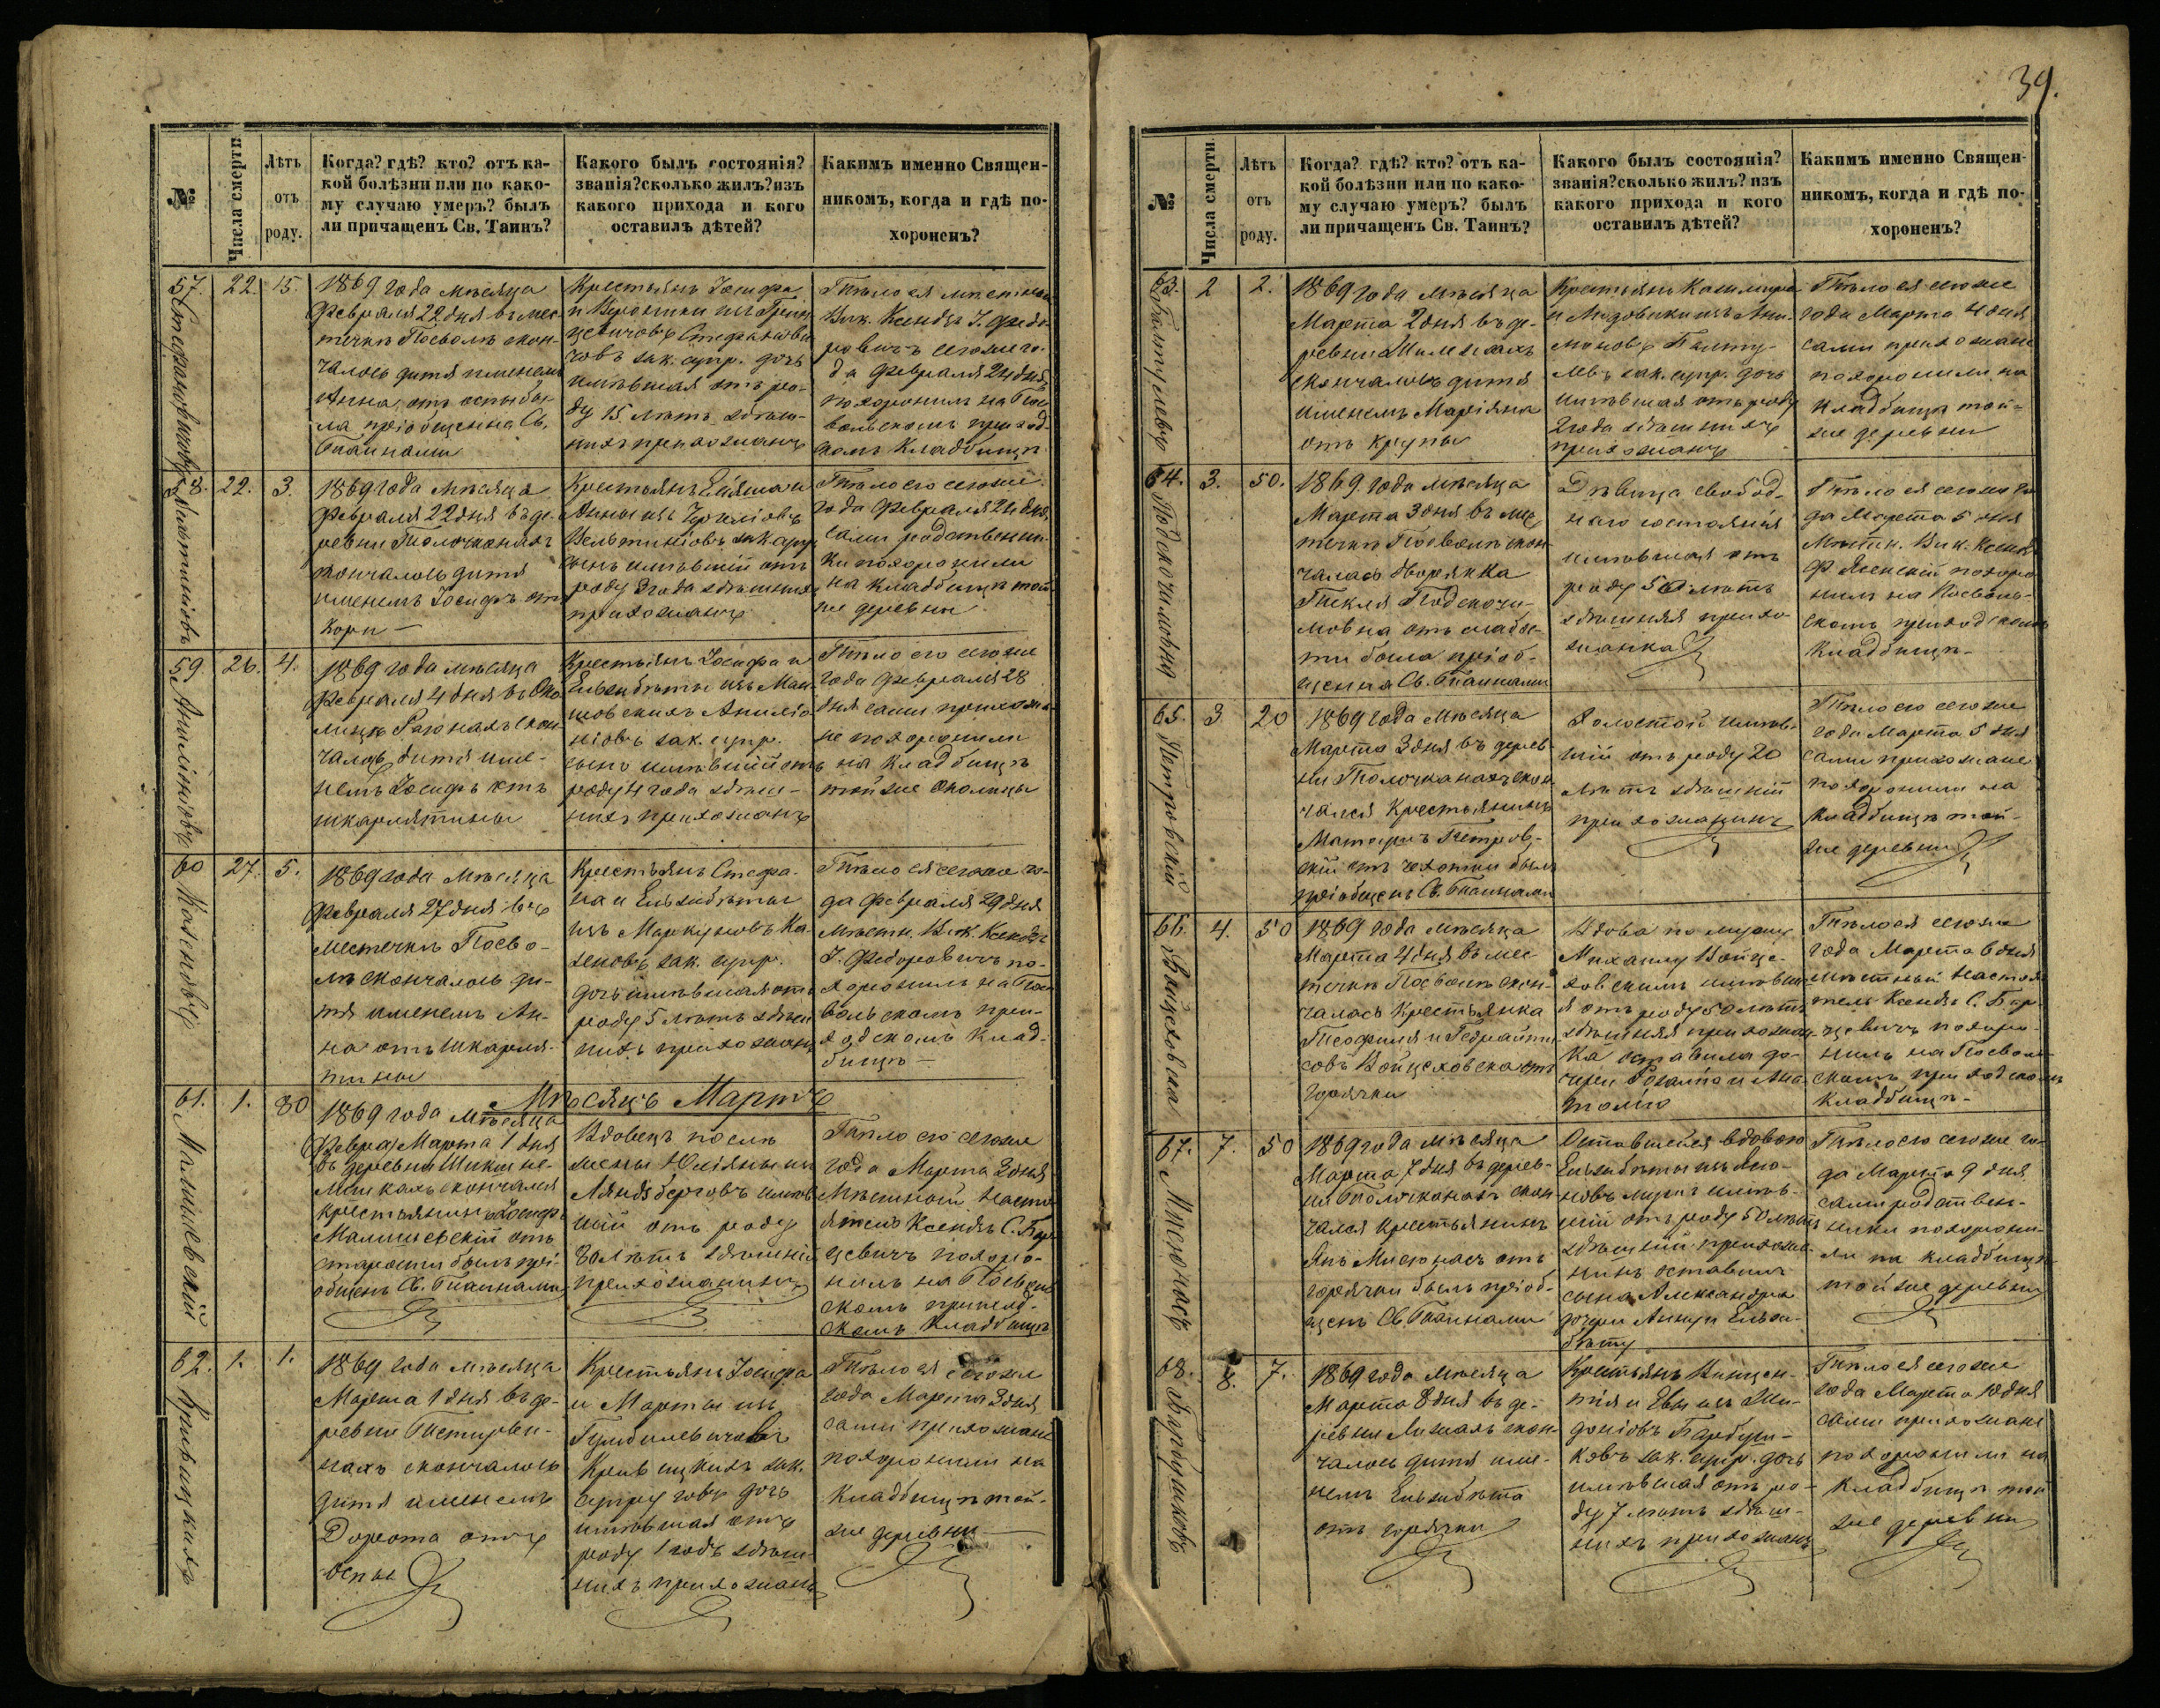 39.
№
Числа смерти.
Лѣтъ
отъ
роду.
Когда? гдѣ? кто? отъ ка-
кой болѣзни или по како-
му случаю умеръ? былъ
ли причащенъ Св. Таинъ?
Какого былъ состоянія?
званія? сколько жилъ? изъ
какого прихода и кого
оставилъ дѣтей?
Какимъ именно Священ-
никомъ, когда и гдѣ по-
хороненъ?
57.
22.
15.
1869 года мѣсяца
Февраля 22 дня въ мѣс-
течкѣ Посволѣ скон-
чалось дитя именемъ
Анна отъ оспы бы-
ла пріобщенна Св.
Тайнами
Крестьянъ Іосифа
и Вероники изъ
Стефанови-
човъ зак. супр. дочь
имѣвшая отъ ро-
ду 15 лѣтъ здѣш-
нихъ прихожанъ
Тѣло ея мѣстный
Вик. Ксендзъ І. Федо-
ровичъ сегоже го-
да Февраля 24 дня
похоронилъ на Пос-
вольскомъ приход-
комъ кладбищѣ
58.
22.
3.
1869 года мѣсяца
Февраля 22 дня въ де-
ревни Толочканахъ
скончалось дитя
именемъ Іосифъ отъ
кори
Крестьянъ
Анны изъ
зак. супр.
сынъ имѣвшій отъ
роду 3 года здѣшнихъ
прихожанъ
Тѣло его сегоже
года Февраля 24 дня
сами родственни-
ки похоронили
на кладбищѣ той-
же деревни
59
26.
4.
1869 года мѣсяца
Февраля 4 дня въ Око-
лицѣ Рагонахъ скон-
чалось дитя име-
немъ Іосифъ отъ
шкарлятины
Крестьянъ Іосифа и
Елизабѣты изъ Мац-
ковскихъ
зак. супр.
сынъ имѣвшій отъ
роду 4 года здѣш-
нихъ прихожанъ
Тѣло его сегоже
года Февраля 28
дня сами прихожа-
не похоронили
на кладбищѣ
тойже околицы
60
27.
5.
1869 года мѣсяца
Февраля 27 дня въ
местечкѣ Посво-
лѣ скончалось ди-
тя именемъ Ан-
на отъ шкарля-
тины
Крестьянъ Стефа-
на и Елизабѣты
изъ Маркуновъ Ка-
зеновъ зак. супр.
дочь имѣвшая отъ
роду 5 лѣтъ здѣш-
нихъ прихожанъ
Тѣло ея сегоже го-
да Февраля 29 дня
Мѣстн. Вик. Ксендзъ
І. Федоровичъ по-
хоронилъ на Пос-
вольскомъ при-
ходскомъ клад-
бищѣ
Мѣсяцъ Мартъ
61.
Малишевскій
1.
80
1869 года мѣсяца
Марта 1 дня
въ деревни
скончался
крестьянинъ Іосифъ
Малишевскій отъ
старости былъ прі-
общенъ Св. Тайнами
Вдовецъ послѣ
жены Юліяны изъ
имѣв-
шій отъ роду
80 лѣтъ здѣшній
прихожанинъ
Тѣло его сегоже
года Марта 3 дня
Мѣстной Насто-
ятель Ксендзъ С. Бар-
цевичъ похоро-
нилъ на Посволь-
скомъ приход-
скомъ кладбищѣ
62.
1.
1.
1869 года мѣсяца
Марта 1 дня въ де-
ревни
нахъ скончалось
дитя именемъ
Дорота отъ
оспы
Крестьянъ Іосифа
и Марты изъ
зак.
супруговъ дочь
имѣвшая отъ
роду 1 годъ здѣш-
нихъ прихожанъ
Тѣло ея сегоже
года Марта 3 дня
сами прихожане
похоронили на
кладбищѣ той-
же деревни
№
Числа смерти.
Лѣтъ
отъ
роду.
Когда? гдѣ? кто? отъ ка-
кой болѣзни или по како-
му случаю умеръ? былъ
ли причащенъ Св. Таинъ?
Какого былъ состоянія?
званія? сколько жилъ? изъ
какого прихода и кого
оставилъ дѣтей?
Какимъ именно Священ-
никомъ, когда и гдѣ по-
хороненъ?
63.
2
2.
1869 года мѣсяца
Марта 2 дня въ де-
ревни
скончалось дитя
именемъ Маріяна
отъ крупы
Крестьянъ Казимира
и Людовики изъ
зак. супр. дочь
имѣвшая отъ роду
2 года здѣшнихъ
прихожанъ
Тѣло ея сегоже
года Марта 4 дня
сами прихожане
похоронили на
кладбищѣ той-
же деревни
64.
3.
50.
1869. года мѣсяца
Марта 3 дня въ мѣс-
течкѣ Посволѣ скон-
чалась дворянка
Текля Подскочи-
мовна отъ слабос-
ти была пріоб-
щенна Св. Тайнами
Дѣвица свобод-
наго состоянія
имѣвшая отъ
роду 50 лѣтъ
здѣшняя прихо-
жанка
Тѣло ея сегоже го-
да Марта 5 дня
Мѣстн. Вик. Ксендзъ
похоро-
нилъ на Посволь-
скомъ приходскомъ
кладбищѣ
65.
Петровскій
3
20
1869 года мѣсяца
Марта 3 дня въ дерев-
ни Толочканахъ скон-
чался крестьянинъ
Матеушъ Петров-
скій отъ чахотки былъ
пріобщенъ Св. Тайнами
Холостой имѣв-
шій отъ роду 20
лѣтъ здѣшній
прихожанинъ
Тѣло его сегоже
года Марта 5 дня
сами прихожане
похоронили на
кладбищѣ той-
же деревни
66.
Войцеховска
4.
50
1869 года мѣсяца
Марта 4 дня въ мѣс-
течкѣ Посволѣ скон-
чалась крестьянка
Теофиля изъ
Войцеховска отъ
горячки
Вдова по мужу
Михаилу Войце-
ховскимъ имѣвша-
я отъ роду 50 лѣтъ
здѣшняя прихожан-
ка оставила до-
чери Розалію и Ана-
толію
Тѣло ея сегоже
года Марта 6 дня
мѣстный Настоя-
тель Ксендзъ С. Бар-
цевичъ похоро-
нилъ на Посволь-
скомъ приходскомъ
кладбищѣ
67.
Мисюнасъ
7.
50
1869 года мѣсяца
Марта 7 дня въ дерев-
ни Толочканахъ скон-
чался крестьянинъ
Янъ Мисюнасъ отъ
горячки былъ пріоб-
щенъ Св. Тайнами
Оставшейся вдовою
Елизабѣты изъ Яно-
новъ мужъ имѣв-
шій отъ роду 50 лѣтъ
здѣшній прихожа-
нинъ оставилъ
сына Александра
дочери Анну и Елиза-
бѣту
Тѣло его сегоже го-
да Марта 9 дня
сами родствен-
ники похорони-
ли на кладбищѣ
тойже деревни
68.
8.
7.
1869 года мѣсяца
Марта 8 дня въ де-
ревни скон-
чалось дитя име-
немъ Елизабѣта
отъ горячки
Крестьянъ Винцен-
тія и Евы изъ
зак. супр. дочь
имѣвшая отъ ро-
ду 7 лѣтъ здѣш-
нихъ прихожанъ
Тѣло ея сегоже
года Марта 10 дня
сами прихожане
похоронили на
кладбищѣ той-
же деревни